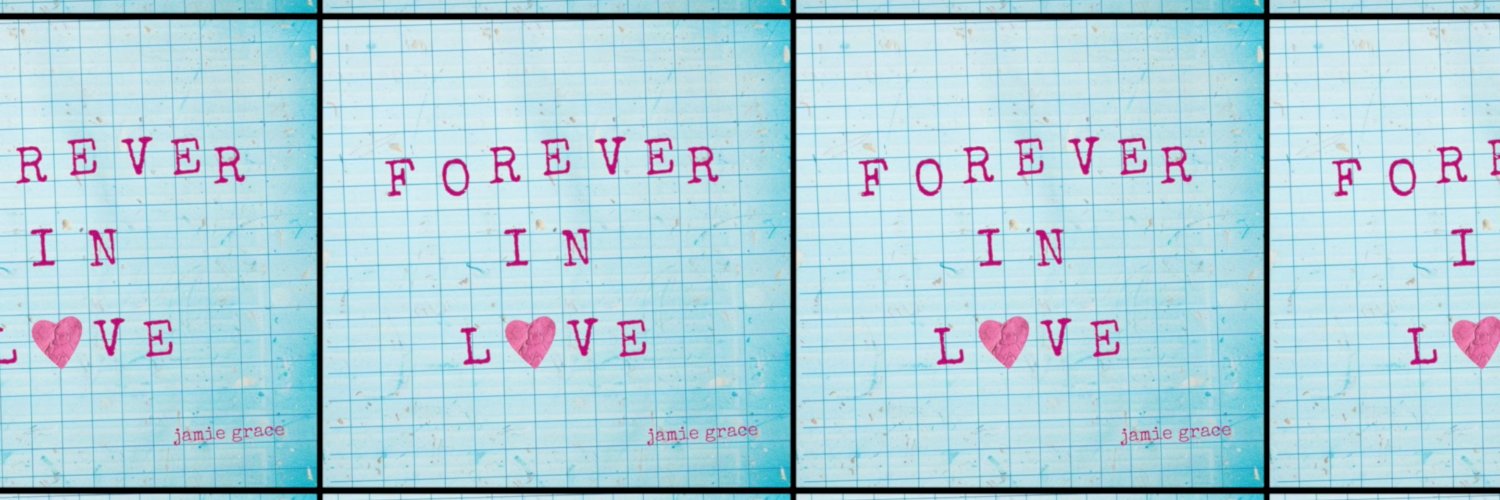 REVER
IN
L VE
jamie grace
FOREVER
IN
L VE
jamie grace
FOREVER
IN
L VE
jamie grace
FORE
I
L